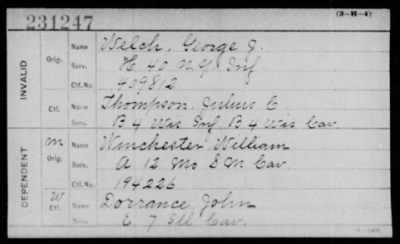 231247
(3-H-4)
INVALID
Orig.
Name Welch, George J.
Serv. H 40 N.Y. Inf
Ctf. No. 409812
Ctf.
Name Thompson, Julius C.
Serv. B 4 Wis Inf B 4 Wis Cav.
DEPENDENT
M
Orig.
Name Winchester William
Serv. A 12 Mo S M Cav.
Ctf. No. 194226
W
Ctf.
Name Dorrance John
Serv. E. 7 Ill Cav.